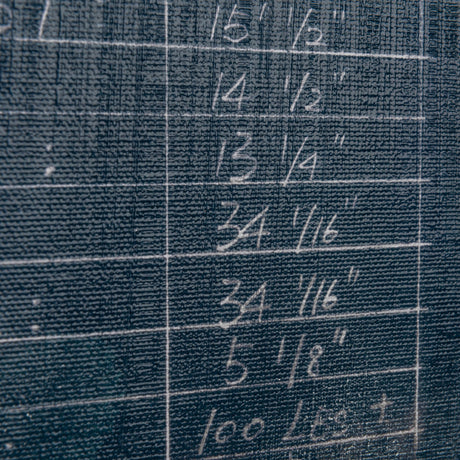 15' 1/2"
14 1/2"
13 1/4"
34 1/16"
34 1/16"
5 1/2"
100 LBS +